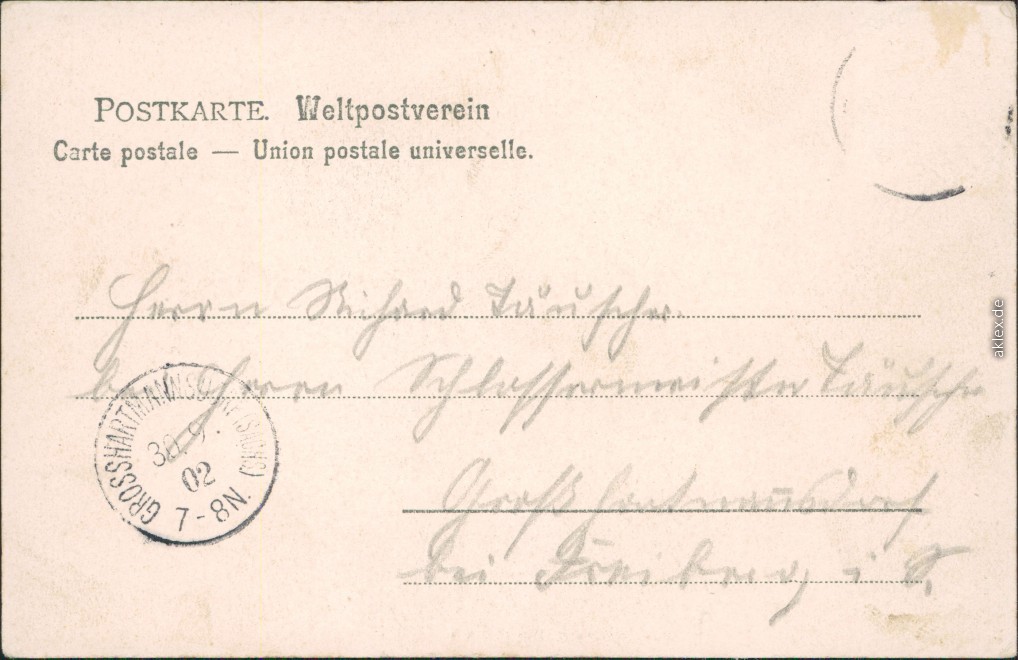 POSTKARTE. Weltpostverein
Carte postale — Union postale universelle.
Herrn Richard Täuscher.
b. Herrn Schlossermeister Täuscher
Großhartmannsdorf
bei Freiberg i S.
GROSSHARTMANNSDORF (SACHS)
30.9.
02
7-8N.
aklex.de